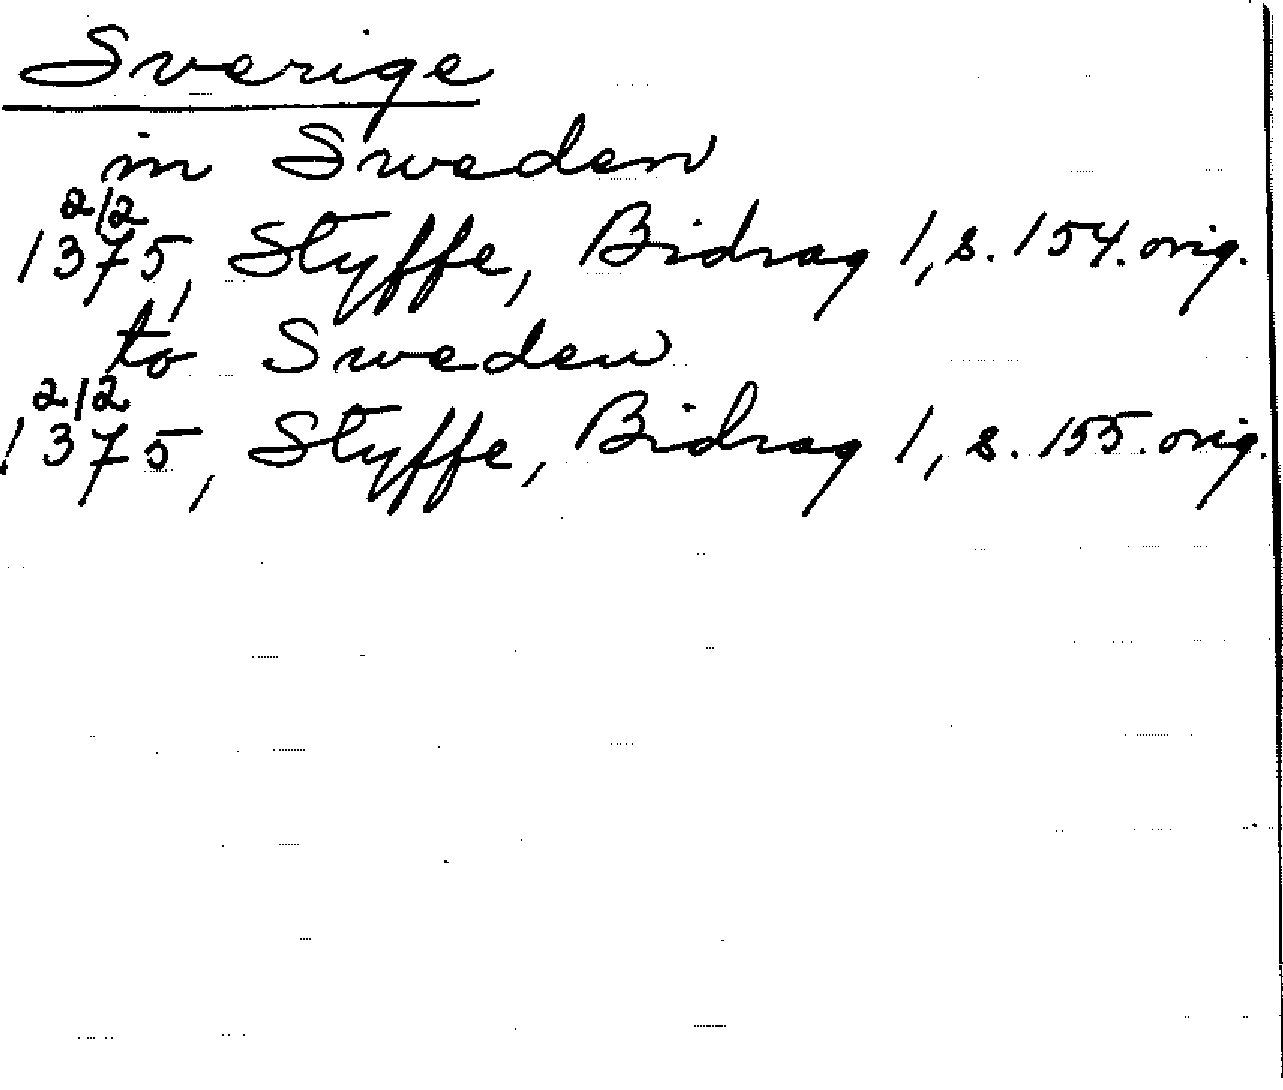 Sverige
in Sweden
2/2
1375, Styffe, Bidrag 1, s. 154. orig.
to Sweden
2/2
1375, Styffe, Bidrag 1, s. 155. orig.